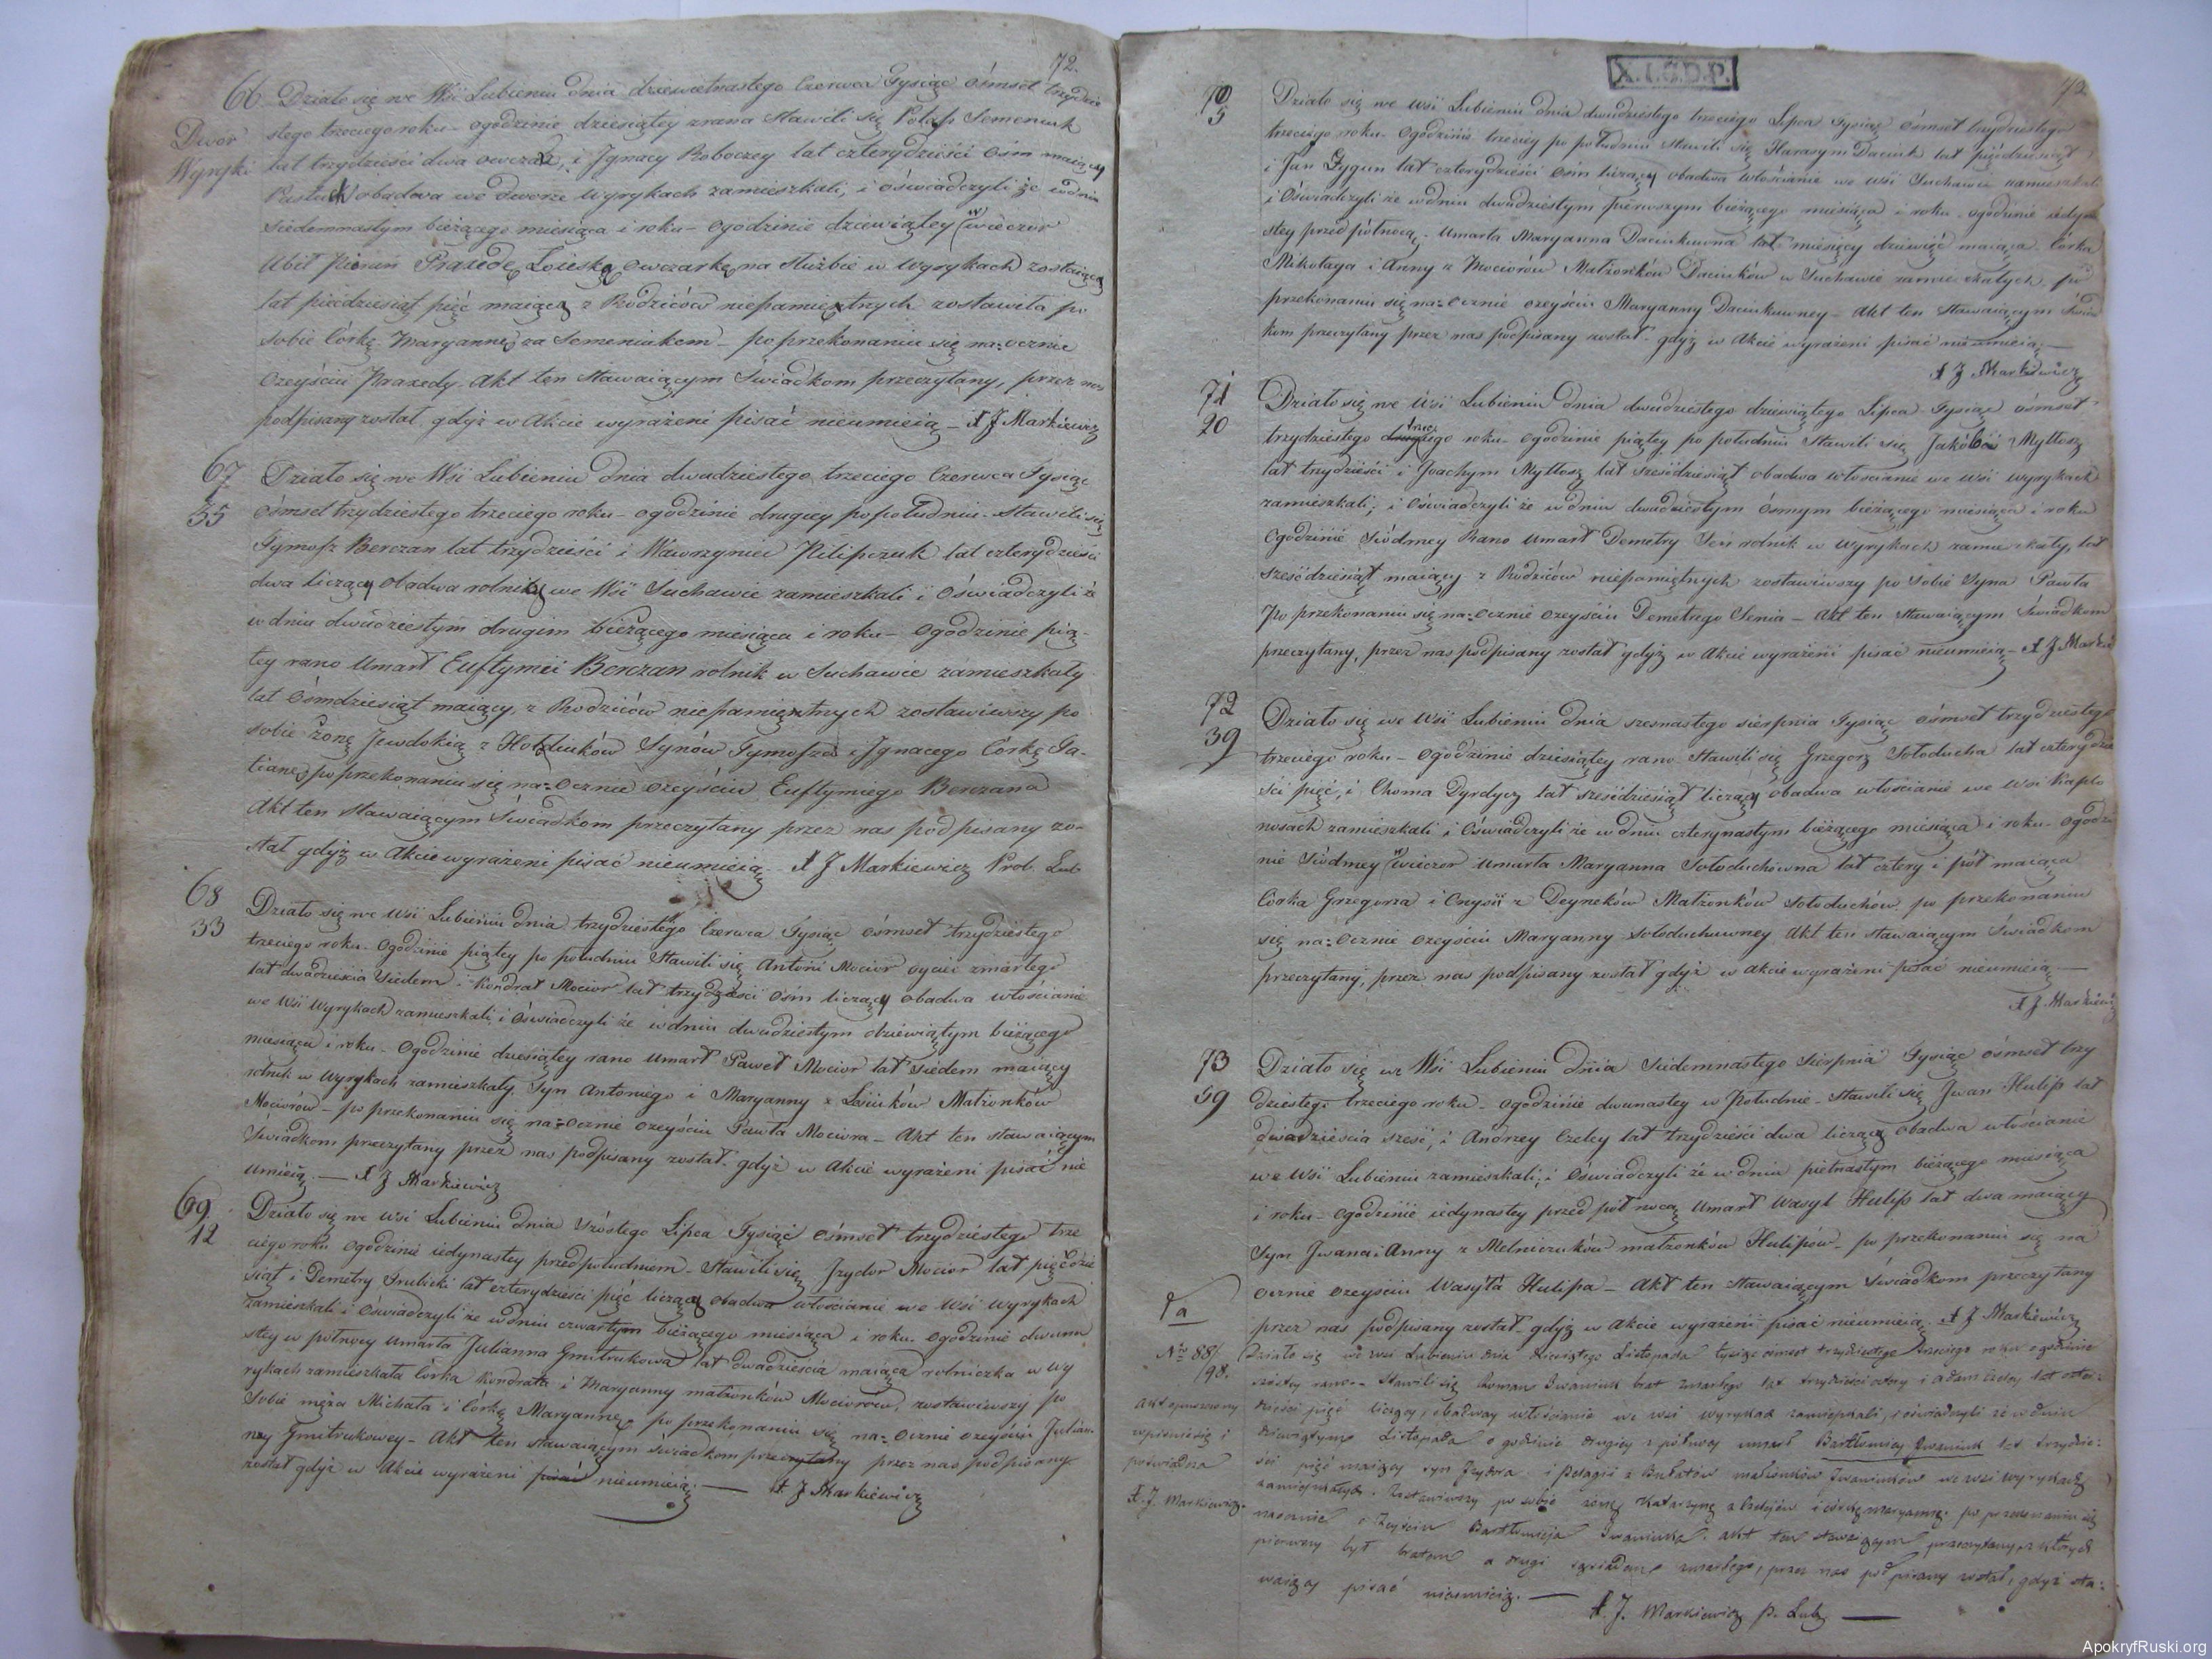 72.
66 Działo się we Wsi Lubieniu dnia dziewietnastego Czerwca Tysiąc ośmset trzydzie
Dwor stego trzeciego roku ogodzinie dziesiątey zrana Stawili się Semeniuk
Wyryki lat trzydzieści dwa owczarz, i Jgnacy Roboczey lat czterydzieści ośm maiący
Pastuch obadwa we dworze Wyrykach zamieszkali, i oświadczyli że wdniu
Siedemnastym bieżącego miesiąca i roku ogodzinie dziewiątey wieczor
Ubił Piorun Praxedę owczarkę na służbie w Wyrykach zostaiącą
lat piędziesiąt pięć maiącą z Rodziców niepamiętnych zostawiła po
sobie Córkę Maryannę za Semeniukem po przekonaniu się na=ocznie
Ozeyściu Praxedy Akt ten stawaiącym Swiadkom przeczytany, przez nas
podpisany został gdyż w Akcie wyrażeni pisać nieumieią X J Markiewicz
67 Działo się we Wsi Lubieniu Dnia dwudziestego trzeciego Czerwca Tysiąc
55 ośmset trzydziestego trzeciego roku ogodzinie drugiey popołudniu Stawili się
Tymosz Berezan lat trzydzieści i Wawrzyniec Pilipczuk lat czterydzieści
dwa liczący obadwa rolnicy we Wsi Suchawie zamieszkali i oświadczyli że
w dniu dwudziestym drugim bieżącego miesiąca i roku ogodzinie pią=
tey rano Umarł Euftymii Berezan rolnik w Suchawie zamieszkały
lat ośmdziesiąt maiący, z Rodziców niepamiętnych zostawiwszy po
sobie Zonę Jewdokią z Synów Tymosza i Jgnacego Córkę Ta-
tiannę po przekonaniu się na=ocznie ozeyściu Euftymiego Berezana
Akt ten stawaiącym Swiadkom przeczytany przez nas podpisany zo-
stał gdyż w Akcie wyrażeni pisać nieumieią X J Markiewicz Prob. Lub
68 Działo się we Wsi Lubieniu dnia trzydziestego Czerwca Tysiąc ośmset trzydziestego
33 trzeciego roku ogodzinie piątey po południu Stawili się Antoni Mocior oyciec zmarłego
lat dwadzieścia siedem i Kondrat Mocior lat trzydzieści ośm liczący obadwa włościanie
we Wsi Wyrykach zamieszkali i oświadczyli że wdniu dwudziestym dziewiątym bieżącego
miesiąca i roku ogodzinie dziesiątey rano Umarł Paweł Mocior lat siedem maiący
rolnik w Wyrykach zamieszkały Syn Antoniego i Maryanny z Małżonków
Mociorów po przekonaniu się na=ocznie ozeyściu Pawła Mociora Akt ten stawaiącym
Swiadkom przeczytany przez nas podpisany został gdyż w Akcie wyrażeni pisać nie
umieią. X J Markiewicz
69 Działo się we Wsi Lubieniu Dnia szóstego Lipca Tysiąc ośmset trzydziestego trze
12 ciego roku ogodzinie iedynastey przedpołudniem Stawili się Jzydor Mocior lat pięćdzie
siąt i Demetry Jrulicki lat czterydzieści pięć liczący obadwa włościanie we Wsi Wyrykach
zamieszkali i oświadczyli że wdniu czwartym bieżącego miesiąca i roku ogodzinie dwuna
stey w północy umarła Julianna Gmitrukowa lat dwadzieścia maiąca rolniczka w Wy
rykach zamieszkała Córka Kondrata i Maryanny małżonków Mociorów, zostawiwszy po
sobie męża Michała i Córkę Maryannę po przekonaniu się na=ocznie ozeyściu Julian
ny Gmitrukowey Akt ten stawaiącym świadkom przeczytany przez nas podpisany
został gdyż w Akcie wyrażeni pisać nieumieią. X J Markiewicz
72
70 Działo się we Wsi Lubieniu dnia dwudziestego trzeciego Lipca Tysiąc ośmset trzydziestego
5 trzeciego roku ogodzinie trzeciey po południu Stawili się Harasym Daciuk lat piędziesiąt
i Jan Gygun lat czterydzieści ośm liczący obadwa włościanie we Wsi Suchawie zamieszkali
i oświadczyli że wdniu dwudziestym pierwszym bieżącego miesiąca i roku ogodzinie iedyna
stey przed północą. Umarła Maryanna Daciukuwna lat miesięcy dziewięć maiąca Córka
Mikołaya i Anny z Mociorów Małżonków Daciuków w Suchawie zamieszkałych, po
przekonaniu się na=ocznie ozeyściu Maryanny Daciukuwney Akt ten stawaiącym świad
kom przeczytany przez nas podpisany został gdyż w Akcie wyrażeni pisać nie umieią.
X J Markiewicz
71 Działo się we Wsi Lubieniu dnia dwudziestego dziewiątego Lipca Tysiąc ośmset
20 trzydziestego trzeciego roku ogodzinie piątey po południu Stawili się Myttosz
lat trzydzieści i Joachym Myttosz lat sześćdziesiąt obadwa włościanie we Wsi Wyrykach
zamieszkali, i oświadczyli że wdniu dwudziestym ósmym bieżącego miesiąca i roku
Ogodzinie Siódmey Rano umarł Demetry Seń rolnik w Wyrykach zamieszkały, lat
sześćdziesiąt maiący z Rodziców niepamiętnych zostawiwszy po sobie Syna Pawła
Po przekonaniu się na=ocznie ozeyściu Demetrego Senia Akt ten stawaiącym świadkom
przeczytany, przez nas podpisany został gdyż w Akcie wyrażeni pisać nieumieią X J Markie
72 Działo się we Wsi Lubieniu dnia szesnastego sierpnia Tysiąc ośmset trzydziestego
39 trzeciego roku ogodzinie dziesiątey rano Stawili się Grzegorz Sołoducha lat czterydzie
ści pięć, i Choma Dyrdycz lat sześćdziesiąt liczący obadwa włościanie we Wsi Kaplo
nosach zamieszkali i oświadczyli że w dniu czternastym bieżącego miesiąca i roku ogodzi
nie Siódmey wieczor umarła Maryanna Sołoduchówna lat cztery i pół maiąca
Córka Grzegorza i z Deyneków Małżonków Sołoduchów po przekonaniu
się na=ocznie ozeyściu Maryanny Sołoduchuwney Akt ten stawaiącym świadkom
przeczytany, przez nas podpisany został gdyż w akcie wyrażeni pisać nieumieią
X J Markiewicz
73 Działo się we Wsi Lubieniu Dnia Siedemnastego sierpnia Tysiąc ośmset trzy
59 dziestego trzeciego roku ogodzinie dwunastey w Południe Stawili się Jwan Hulip lat
dwadzieścia sześć, i Andrzey Czeley lat trzydzieści dwa liczący obadwa włościanie
we Wsi Lubieniu zamieszkali; i oświadczyli że wdniu piętnastym bieżącego miesiąca
i roku ogodzinie iedynastey przed północą Umarł Wasyl Hulip lat dwa maiący
Syn Jwana i Anny z Melniczuków małżonków Hulipów po przekonaniu się na
ocznie ozeyściu Wasyla Hulipa Akt ten stawaiącym Swiadkom przeczytany
przez nas podpisany został gdyż w Akcie wyrażeni pisać nieumieią X J Markiewicz
88/98. Działo się we wsi Lubieniu dnia dziewiątego Listopada tysiąc ośmset trzydziestego trzeciego roku ogodzinie
szóstey rano Stawili się Roman Jwaniuk brat zmarłego lat trzydzieści cztery i Adam lat czter
Akt opuszczony dzieści pięć liczący, obadway włościanie we wsi wyrykach zamieszkali, i oświadczyli że wdniu
wpisuie się i dziewiątym Listopada o godzinie drugiey z północy umarł Bartłomiey Jwaniuk lat trzydzie:
poświadcza ści pięć maiący syn Jzydora i Pelagii z małżonków Jwaniuków we wsi wyrykach
X. J. Markiewicz zamieszkałych. Zostawiwszy po sobie żonę Katarzynę z i córkę maryannę. po przekonaniu się
naocznie o Zeyściu Bartłomieja Jwaniuka. akt ten stawaiącym przeczytany z których
pierwszy był bratem a drugi sąsiadem zmarłego, przez nas podpisany został, gdyż sta:
waiący pisać nieumieią.
X. J. Markiewicz p. Lub.
ApokryfRuski.org